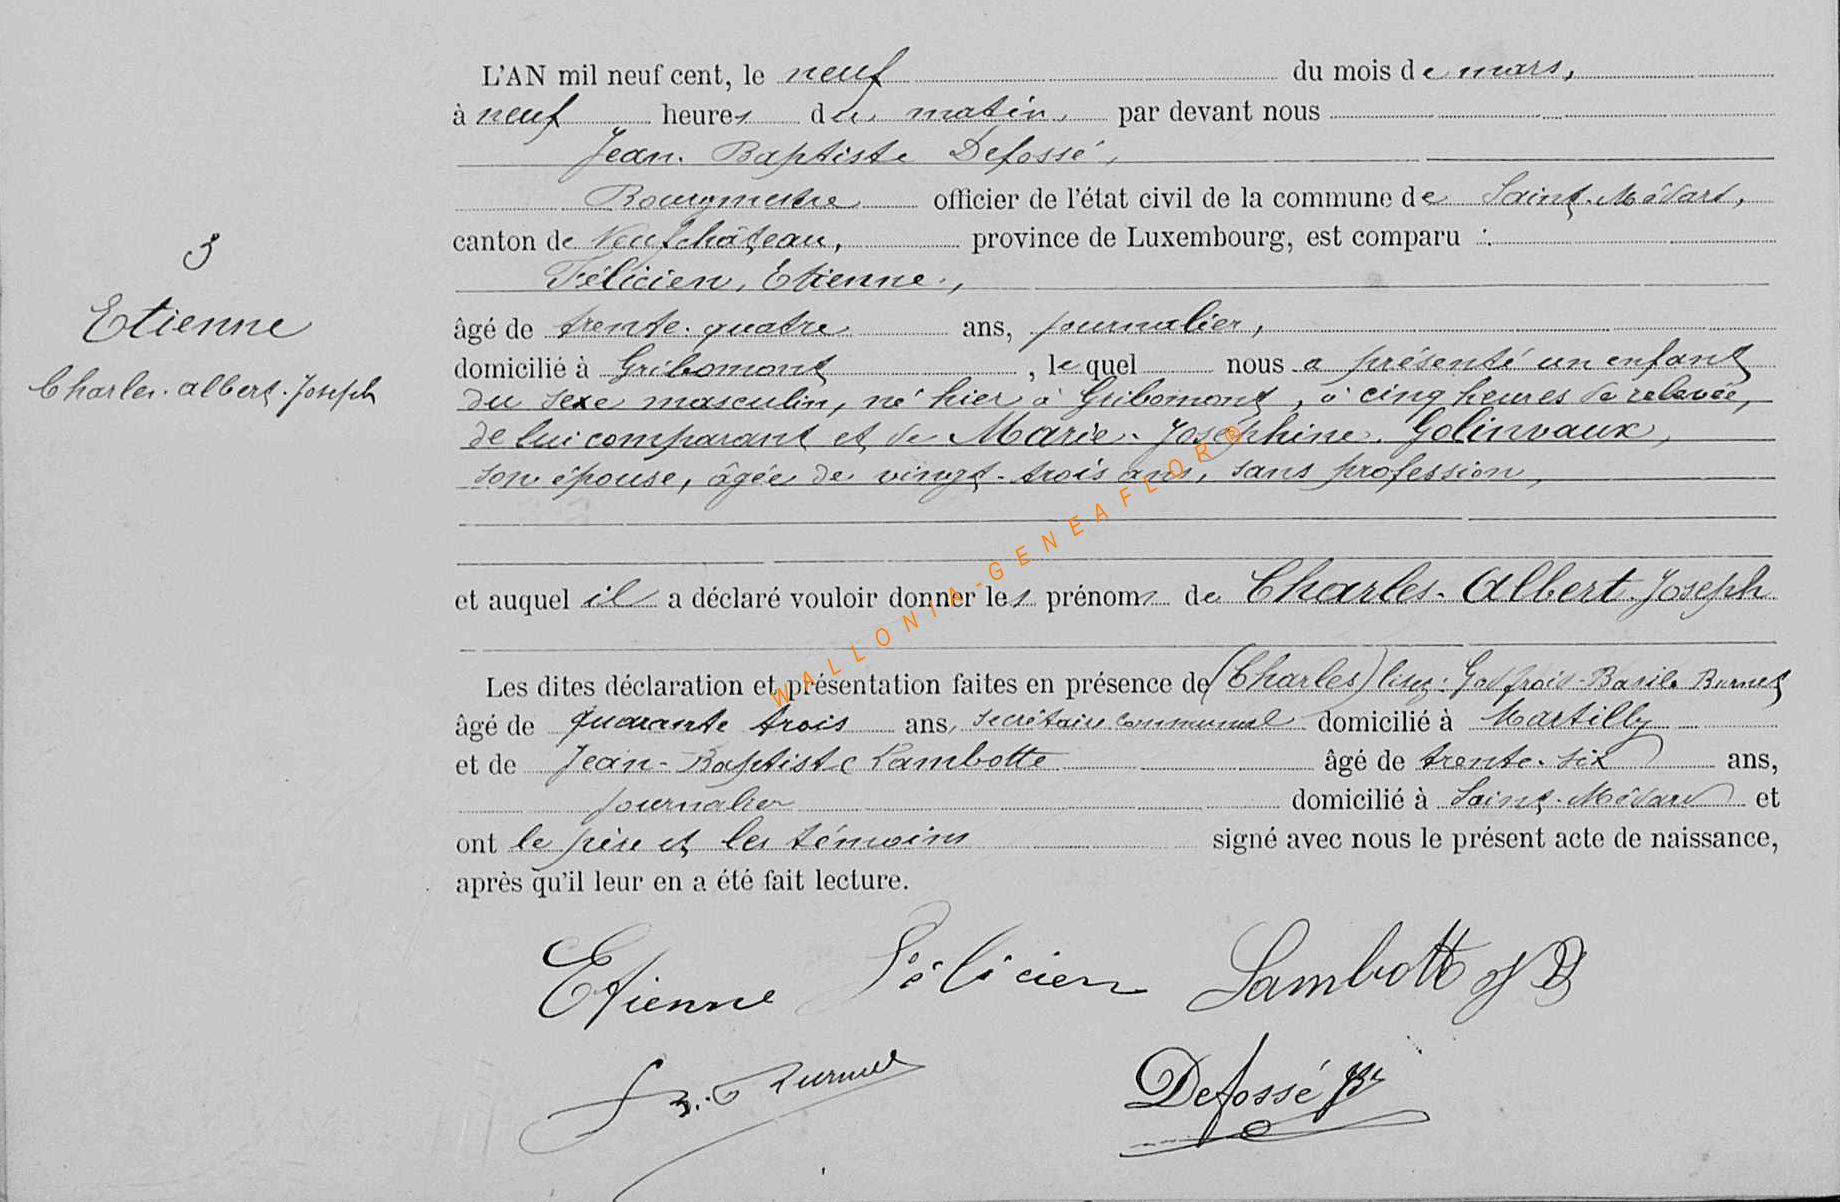 L'AN mil neuf cent, le neuf du mois de mars,
à neuf heures du matin, par devant nous
Jean-Baptiste Defossé,
Bourgmestre officier de l'état civil de la commune de Saint-Médard,
canton de Neufchâteau, province de Luxembourg, est comparu :
Félicien, Etienne,
âgé de trente-quatre ans, journalier,
domicilié à Gribomont, lequel nous a présenté un enfant
du sexe masculin, né hier à Gribomont, à cinq heures de relevée,
de lui comparant et de Marie-Josephine Golinvaux,
son épouse, âgée de vingt-trois ans, sans profession,
et auquel il a déclaré vouloir donner les prénoms de Charles-Albert-Joseph
Les dites déclaration et présentation faites en présence de (Charles) lisez: Godfroid-Basile Burnet
âgé de quarante trois ans, secrétaire communal domicilié à Martilly
et de Jean-Baptiste Lambotte âgé de trente-six ans,
journalier domicilié à Saint-Médard et
ont le père et les témoins signé avec nous le présent acte de naissance,
après qu'il leur en a été fait lecture.
Etienne Félicien Lambotte JB
Burnet
Defossé JB
Etienne
Charles-Albert-Joseph
WALLONIA-GENEAFLOR®